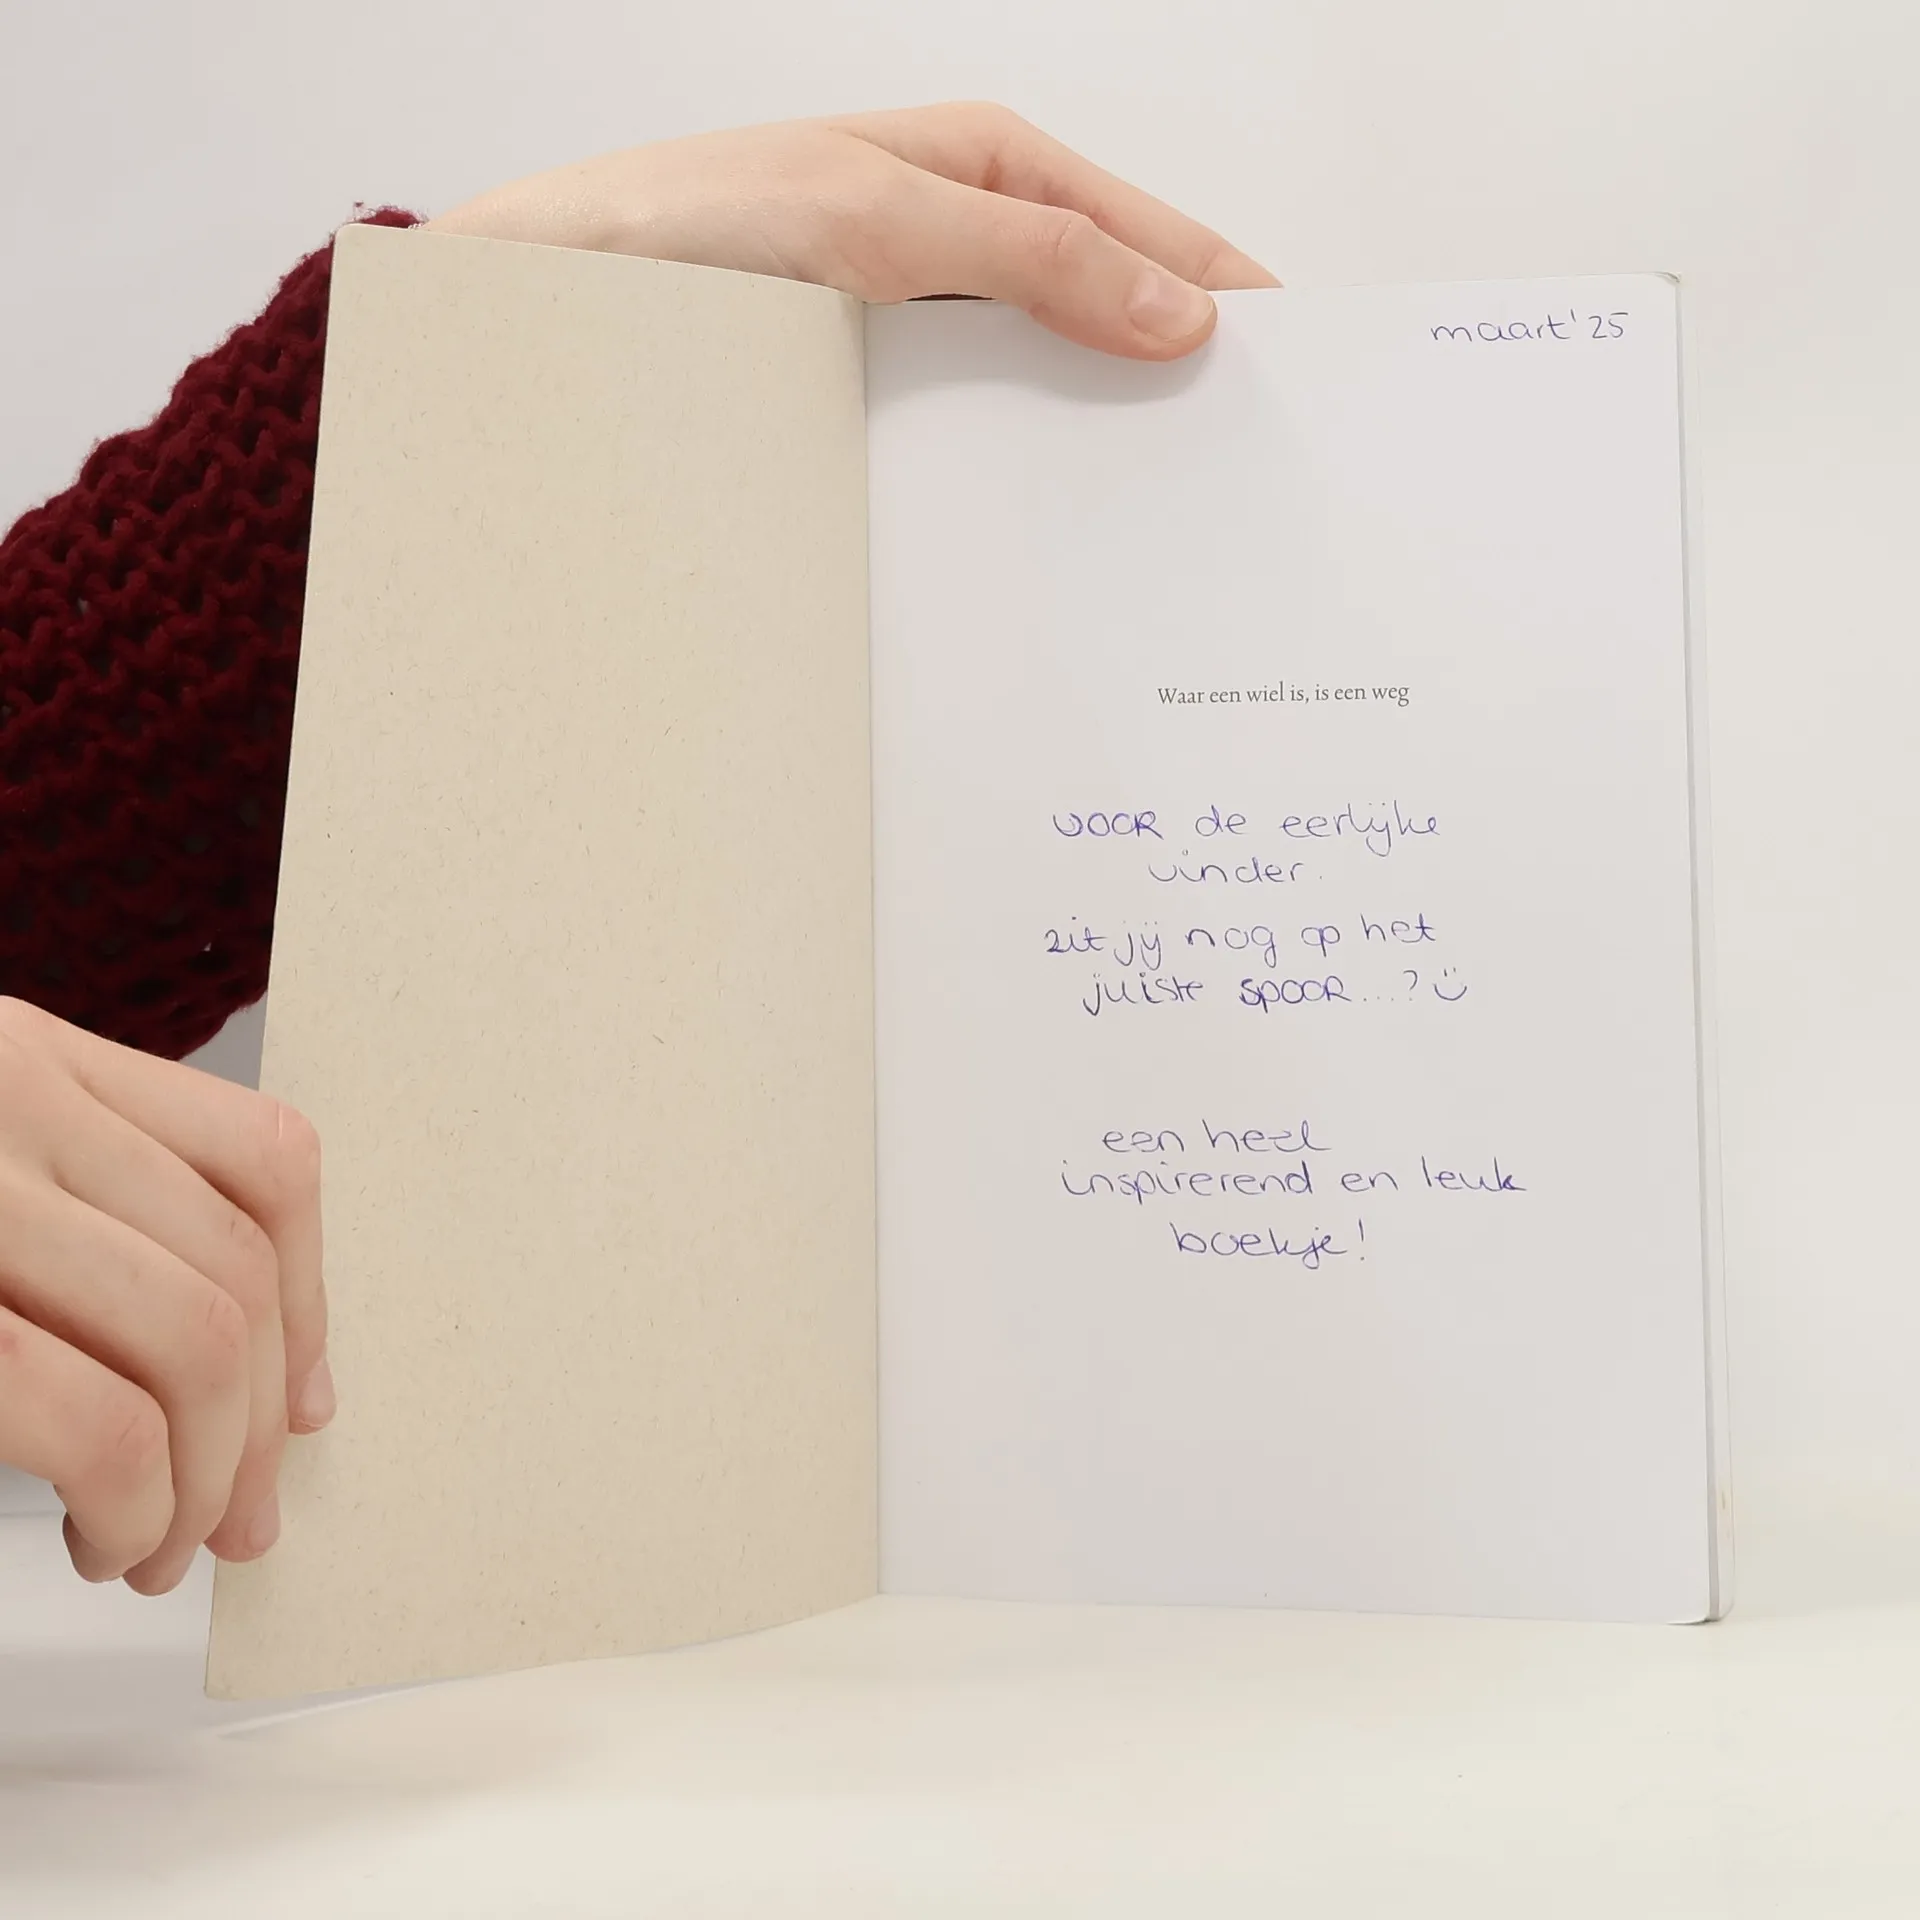 maart '25
Waar een wiel is, is een weg
voor de eerlijke
vinder.
zit jij nog op het
juiste spoor...? ü
een heel
inspirerend en leuk
boekje!